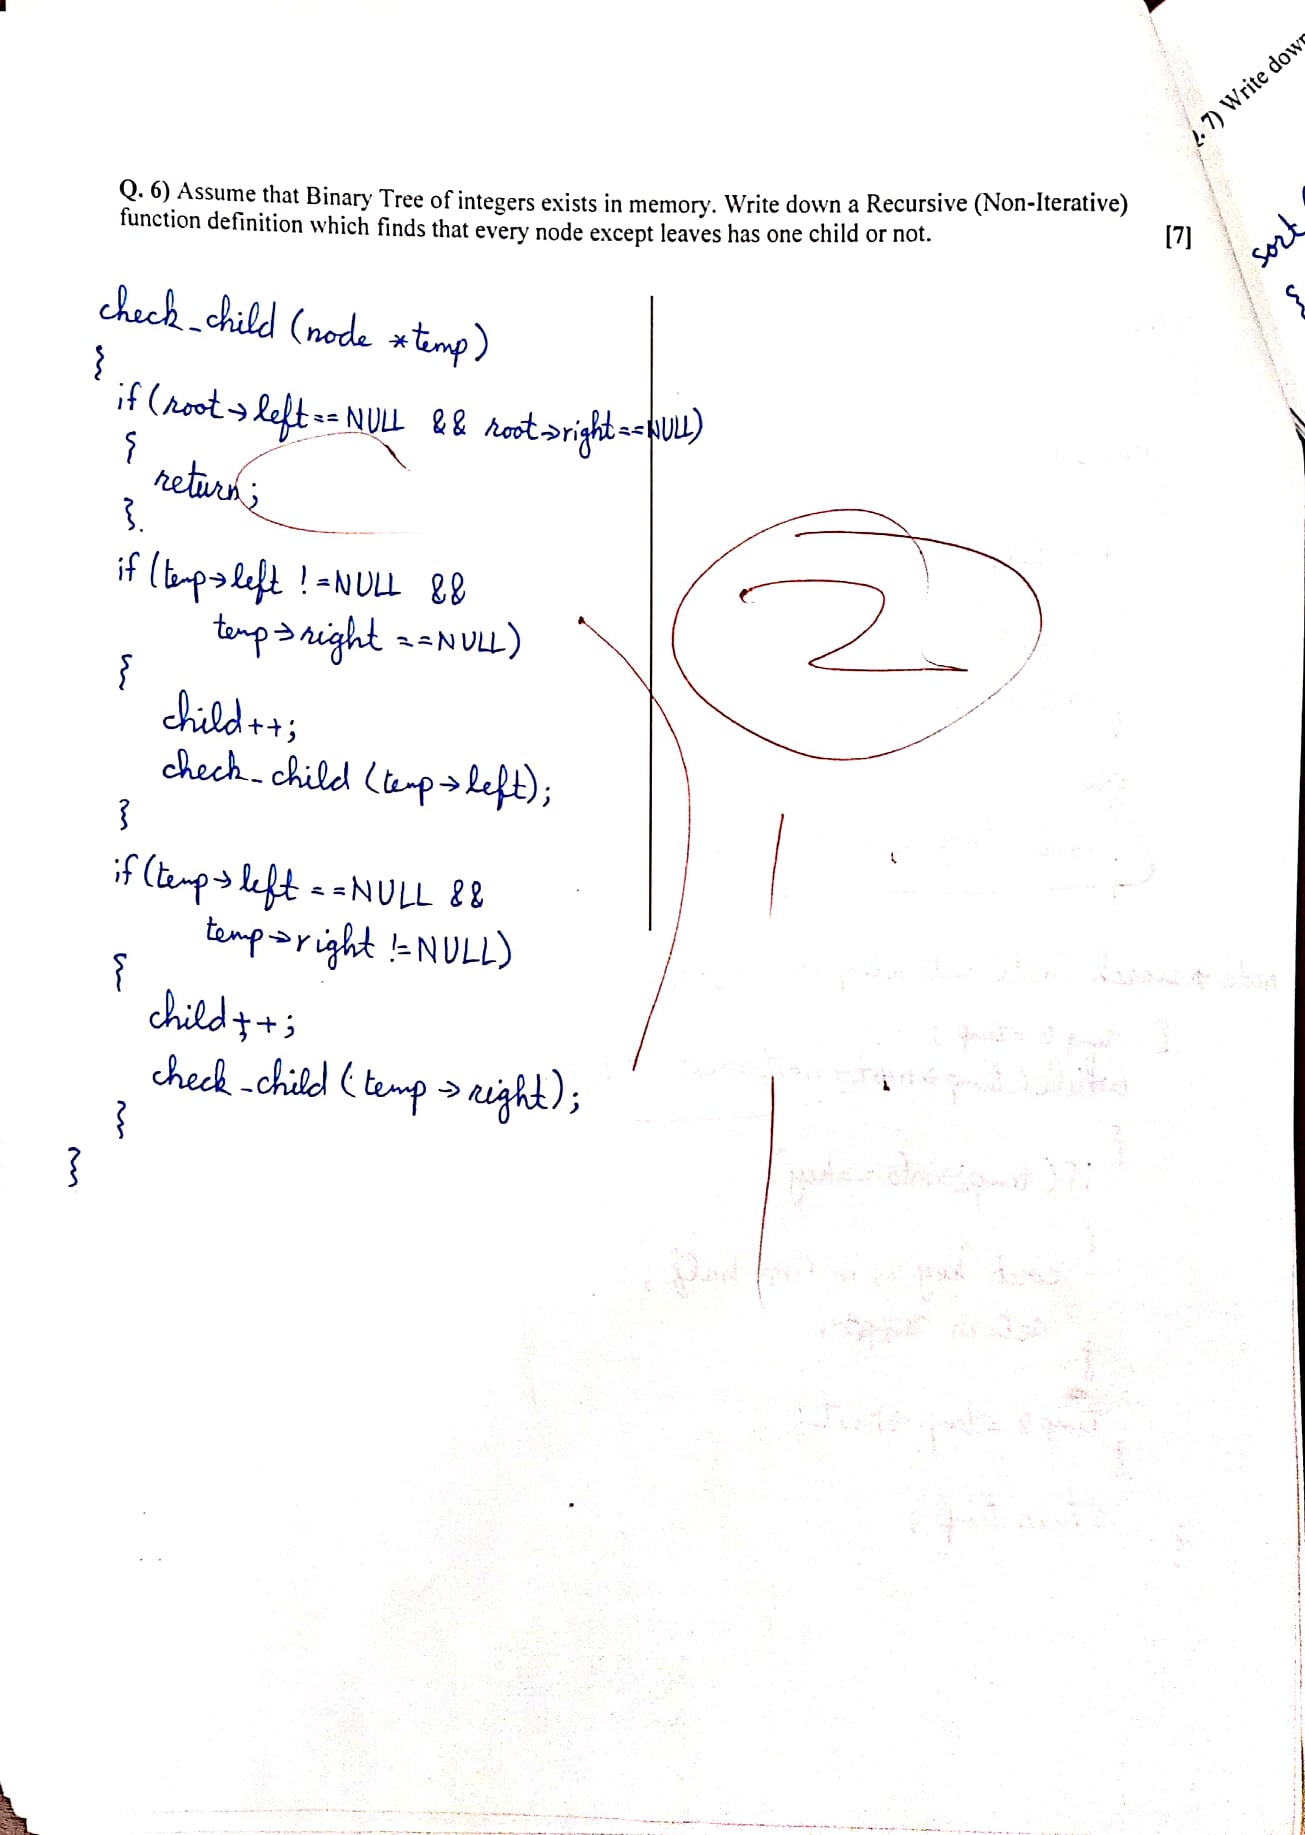 7) Write down
Q. 6) Assume that Binary Tree of integers exists in memory. Write down a Recursive (Non-Iterative)
function definition which finds that every node except leaves has one child or not.
[7]
sort
{
check_child (node *temp)
{
if (root→left == NULL && root→right == NULL)
{
return;
}.
if (temp→left != NULL &&
temp→right == NULL)
{
child++;
check_child (temp→left);
}
if (temp→left == NULL &&
temp→right != NULL)
{
child++;
check_child (temp→right);
}
}
2